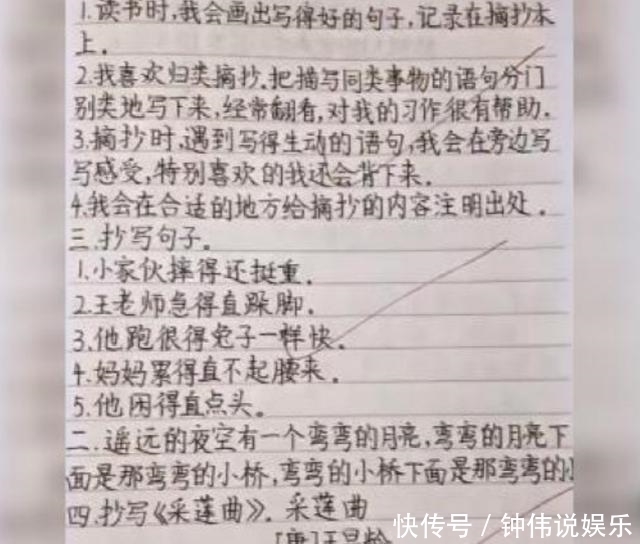 1.读书时,我会画出写得好的句子,记录在摘抄本
上.
2.我喜欢归类摘抄.把描写同类事物的语句分门
别类地写下来,经常翻看,对我的习作很有帮助.
3.摘抄时,遇到写得生动的语句,我会在旁边写
写感受,特别喜欢的我还会背下来.
4.我会在合适的地方给摘抄的内容注明出处.
三.抄写句子.
1.小家伙摔得还挺重.
2.王老师急得直跺脚.
3.他跑很得兔子一样快.
4.妈妈累得直不起腰来.
5.他困得直点头.
二.遥远的夜空有一个弯弯的月亮,弯弯的月亮下
面是那弯弯的小桥,弯弯的小桥下面是那弯弯的
四.抄写《采莲曲》. 采莲曲
[唐]王昌龄
快传号/钟伟说娱乐